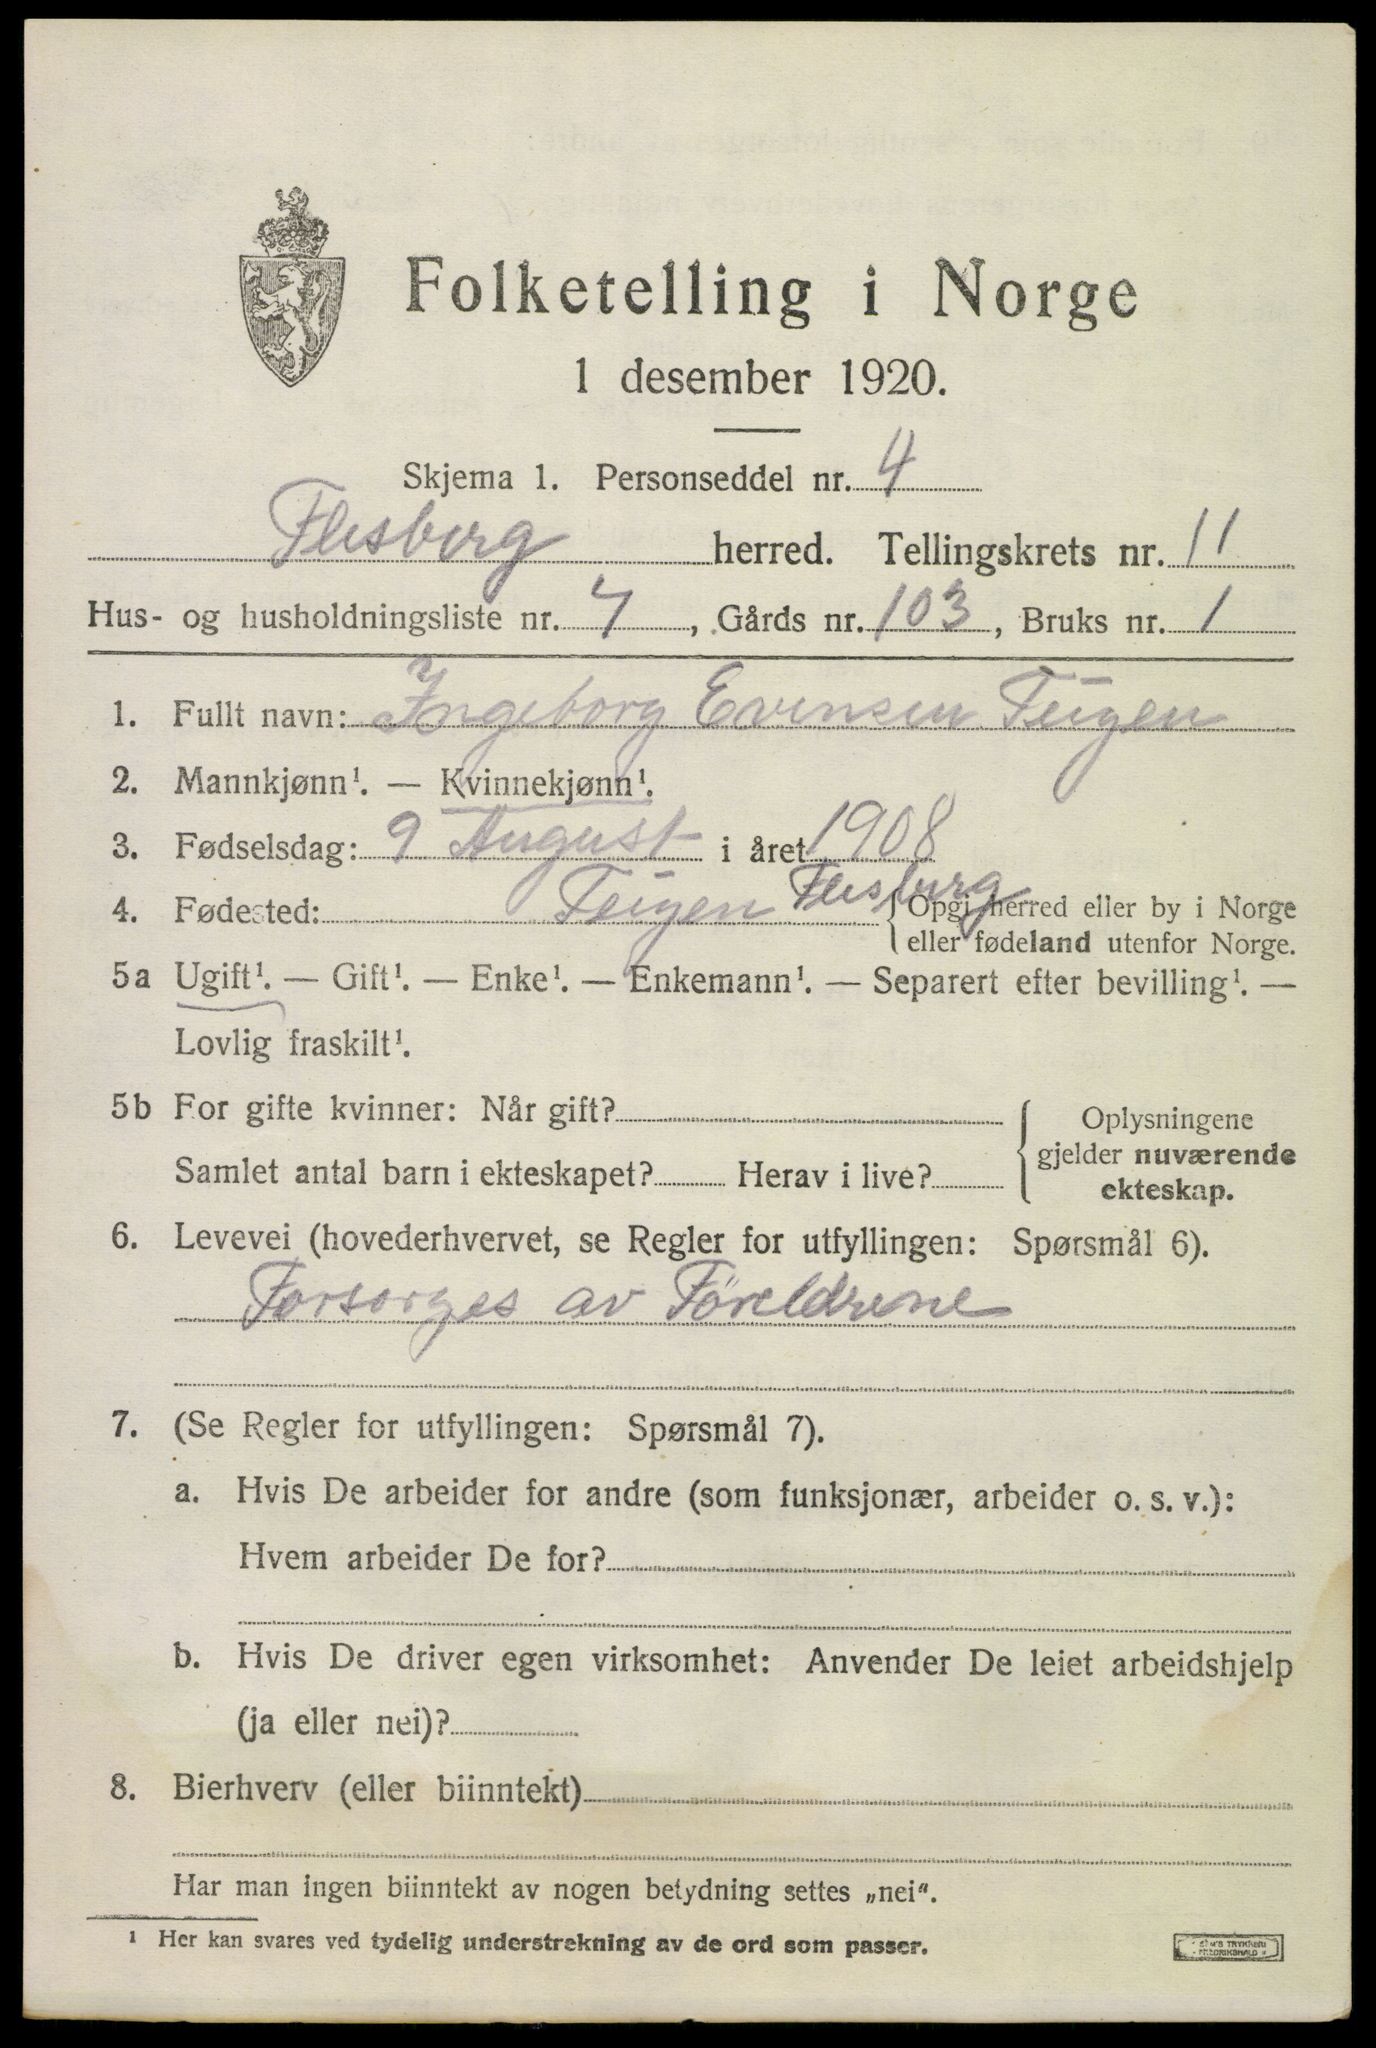 Folketelling i Norge
1 desember 1920.
Skjema 1. Personseddel nr. 4
Flesberg herred. Tellingskrets nr. 11
Hus- og husholdningsliste nr. 7, Gårds nr. 103, Bruks nr. 1
1. Fullt navn: Ingeborg Evensen Teigen
2. Mannkjønn¹. — Kvinnekjønn¹.
3. Fødselsdag: 9 August i året 1908
4. Fødested: Teigen Flesberg { Opgi herred eller by i Norge
eller fødeland utenfor Norge.
5a Ugift¹. — Gift¹. — Enke¹. — Enkemann¹. — Separert efter bevilling¹. —
Lovlig fraskilt¹.
5b For gifte kvinner: Når gift? { Oplysningene
gjelder nuværende
Samlet antal barn i ekteskapet? Herav i live?
ekteskap.
6. Levevei (hovederhvervet, se Regler for utfyllingen: Spørsmål 6).
Forsorges av Foreldrene
7. (Se Regler for utfyllingen: Spørsmål 7).
a. Hvis De arbeider for andre (som funksjonær, arbeider o. s. v.):
Hvem arbeider De for?
b. Hvis De driver egen virksomhet: Anvender De leiet arbeidshjelp
(ja eller nei)?
8. Bierhverv (eller biinntekt)
Har man ingen biinntekt av nogen betydning settes „nei“.
¹ Her kan svares ved tydelig understrekning av de ord som passer.
TRYKKERI
FREDRIKSHALD